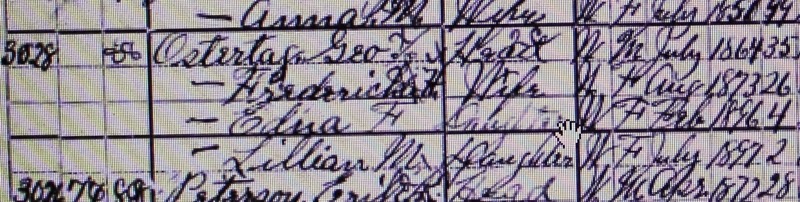 — Anna M Wife W F July 1850 49
3028 Ostertag Geo F Head W M July 1864 35
— Frederica Wife W F Aug 1873 26
— Edna F Daughter W F Feb 1896 4
— Lillian M. Daughter W F July 1897 2
Peterson Head W M Apr 1872 28